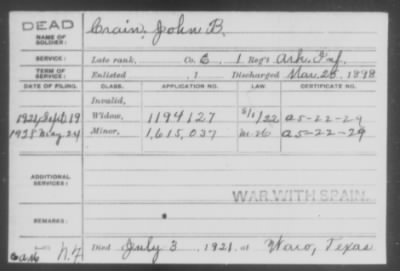 DEAD
NAME OF SOLDIER:
Crain, John B.
SERVICE:
Late rank, Co. E, 1 Reg't Ark. Inf.
TERM OF SERVICE:
Enlisted , 1 Discharged Mar. 25, 1898
DATE OF FILING. CLASS. APPLICATION NO. LAW. CERTIFICATE NO.
Invalid,
1921 Sept. 19 Widow, 1194127 5/1/22 a5-22-29
1928 May 24 Minor, 1,615,037 a5-22-29
ADDITIONAL SERVICES:
WAR WITH SPAIN.
REMARKS:
Died July 3, 1921, at Waco, Texas